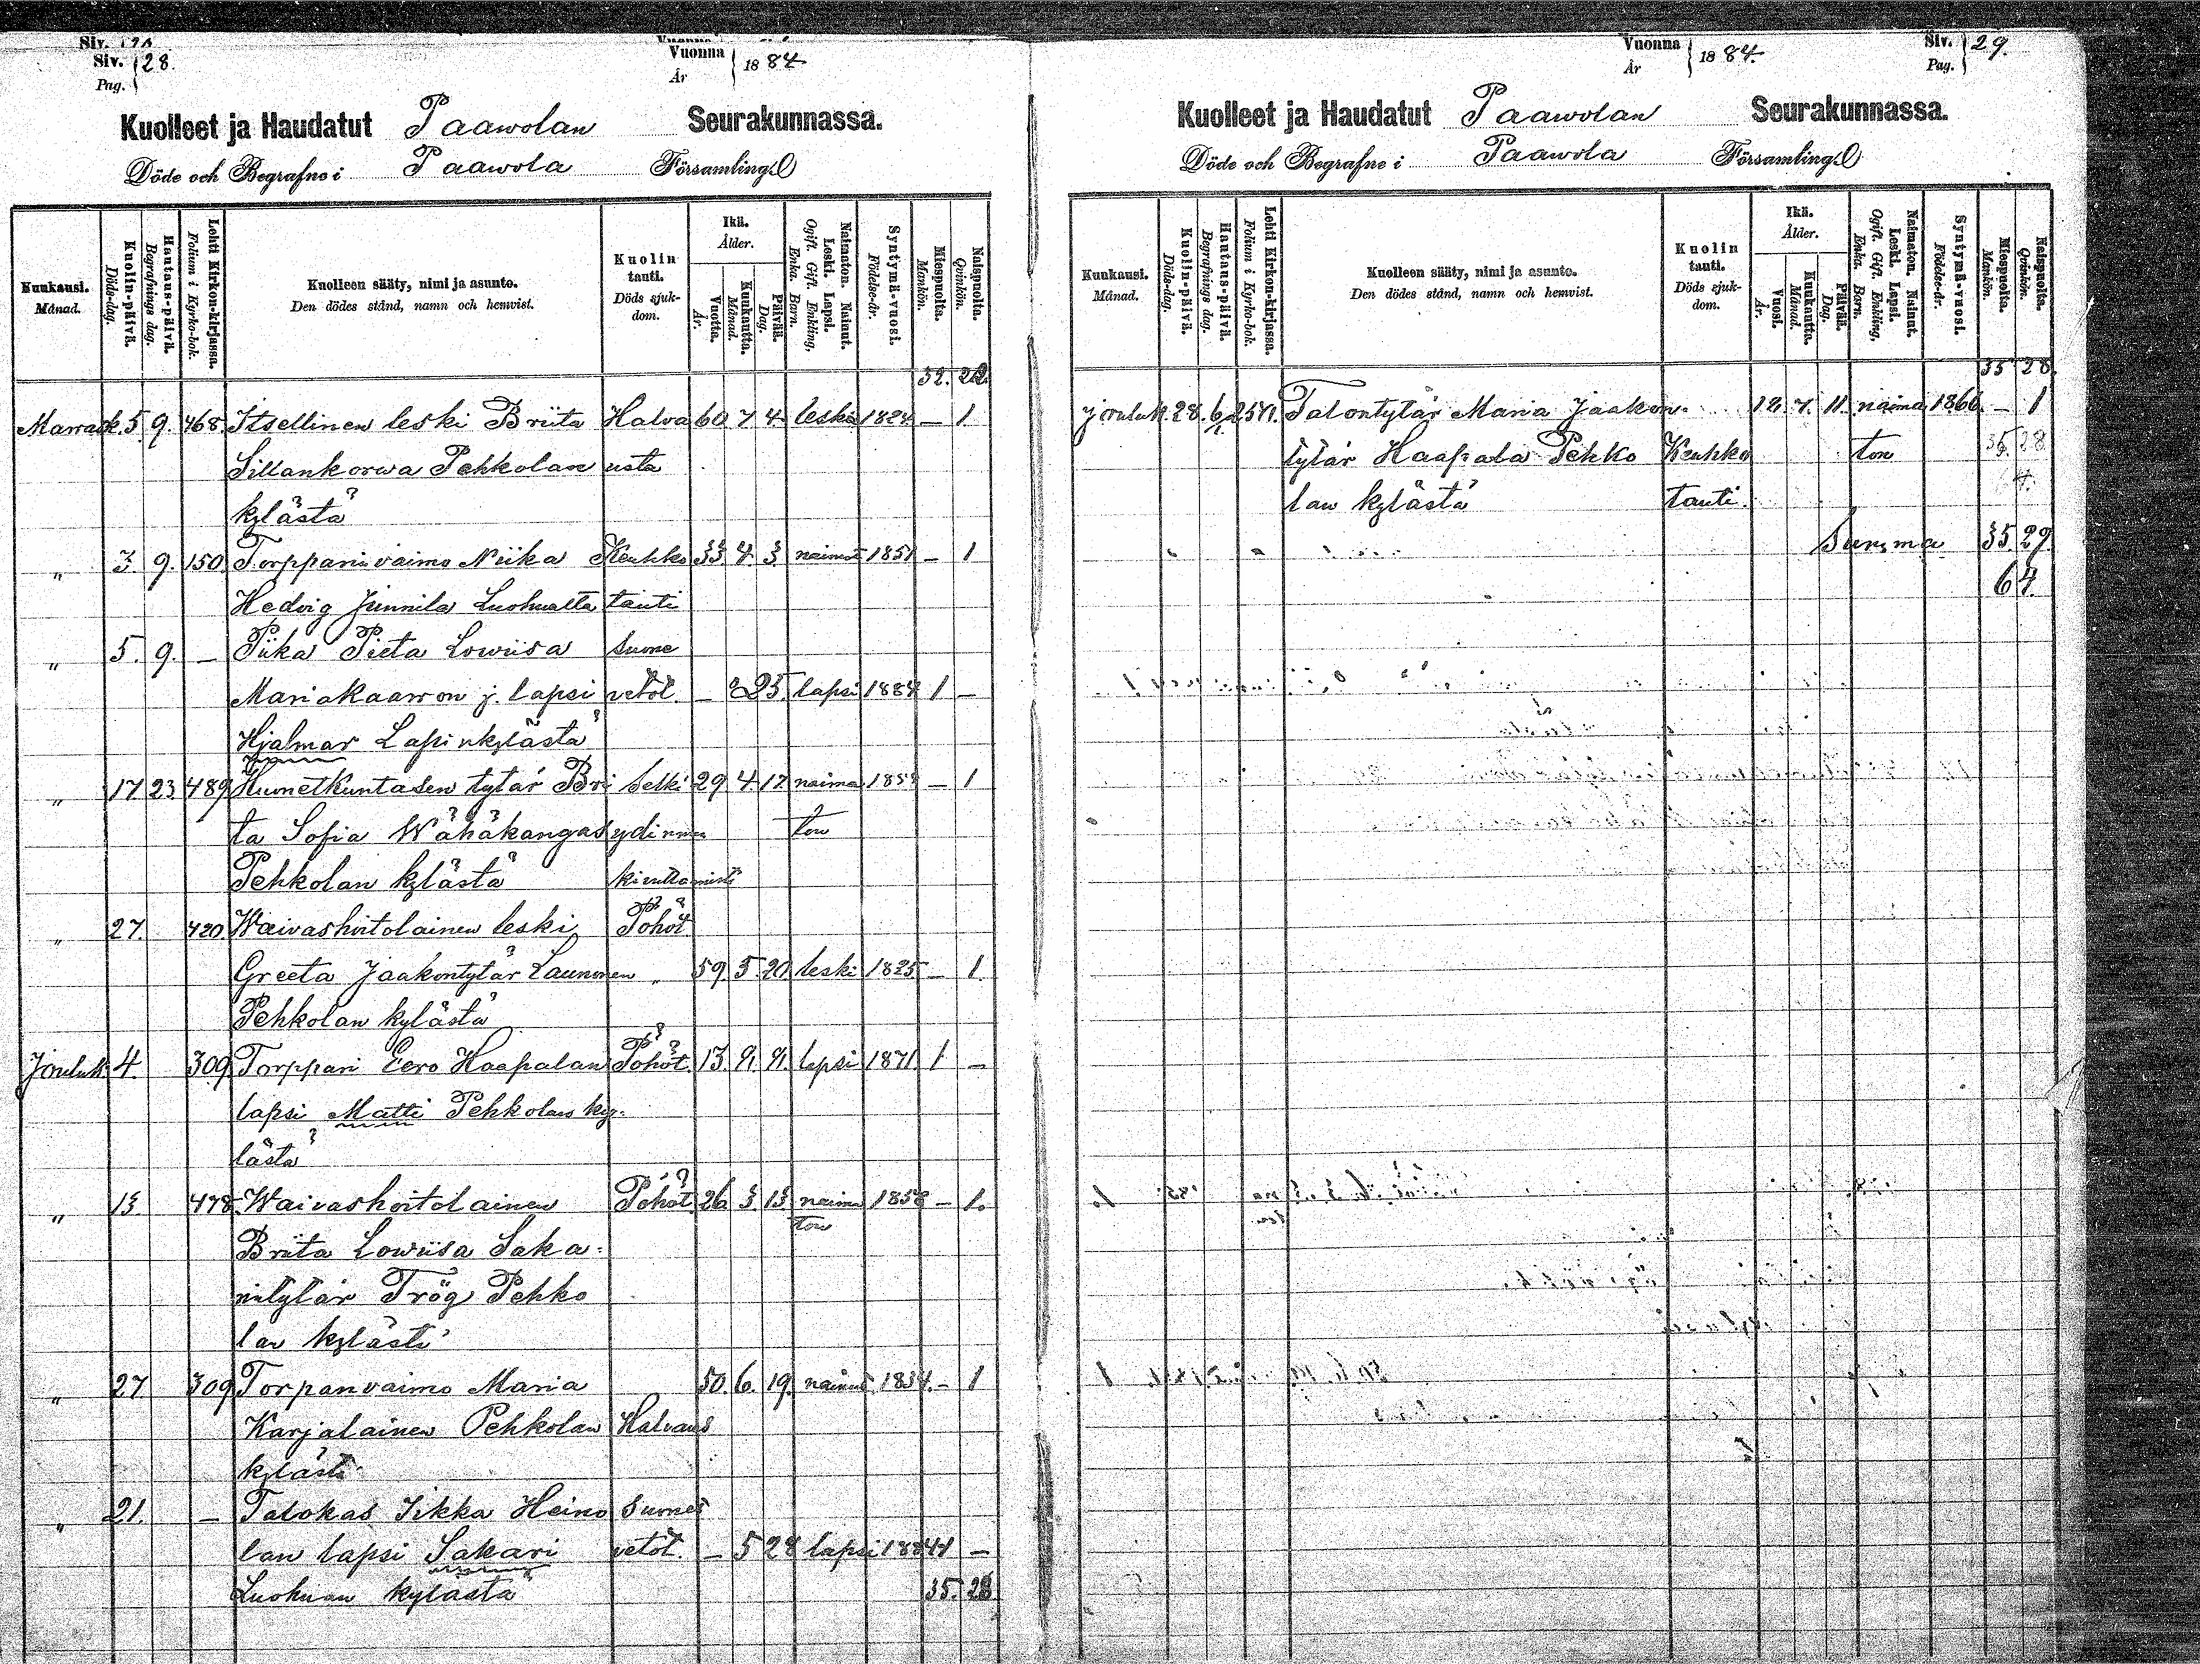 Siv. 28.
Pag.
Vuonna 1884
År
Kuolleet ja Haudatut Paawolan Seurakunnassa.
Döde och Begrafne i Paawola Församling
Kuukausi. Månad.
Kuolin-päivä. Döds-dag.
Hautaus-päivä. Begrafnings dag.
Lehti Kirkon-kirjassa. Folium i Kyrko-bok.
Kuolleen sääty, nimi ja asunto.
Den dödes stånd, namn och hemvist.
Kuolin tauti. Döds sjuk-dom.
Ikä. Ålder.
Vuotta. År.
Kuukautta. Månad.
Päivää. Dag.
Naimaton. Nainut. Leski. Lapsi.
Ogift. Gift. Enkling, Enka. Barn.
Syntymä-vuosi. Födelse-år.
Miespuolta. Mankön.
Naispuolta. Qvinkön.
32. 22.
Marrask. 5 9. 468. Itsellinen leski Briita Halva 60 7 4 leski 1824 — 1
Sillankorwa Pehkolan usta
kylästä
" 3. 9. 150 Torppari vaimo Niika Keuhko 33 4 3 nainut 1851 — 1
Hedvig Junnila Luohualta tauti
" 5. 9. — Piika Pieta Lowiisa Suone
Mariakaarron j. lapsi vetöt. — 2 25. lapsi 1884 1 —
Hjalmar Lapinkylästä
" 17 23 489 Huonetkuntasen tytär Bri Selki 29 4 17. naima 185 — 1
ta Sofia Wähäkangas ydi ton
Pehkolan kylästä
" 27. 420. Waivashoitolainen leski Pöhöt
Greeta Jaakontytär Launonen " 59. 5. 20. leski 1825 — 1.
Pehkolan kylästä
Jouluk. 4. 309. Torppari Eero Haapalan Pöhöt. 13. 9. 9. lapsi 1871. 1 —
lapsi Matti Pehkolan ky-
lästä
" 13. 478. Waivashoitolainen Pöhöt 26 3. 13 naima 1858 — 1.
ton
Briita Lowiisa Saka-
rintytär Trög Pehko
lan kylästä
" 27 309 Torpanvaimo Maria 50. 6. 19. nainut. 1834. — 1
Karjalainen Pehkolan Halvaus
kylästä
" 21. — Talokas Iikka Heino Suonen
lan lapsi Sakari vetöt. — 5 28 lapsi 1884 1 —
Luohuan kylästä 35. 28
Vuonna 1884.
År
Siv. 29.
Pag.
Kuolleet ja Haudatut Paawolan Seurakunnassa.
Döde och Begrafne i Paawola Församling
Kuukausi. Månad.
Kuolin-päivä. Döds-dag.
Hautaus-päivä. Begrafnings dag.
Lehti Kirkon-kirjassa. Folium i Kyrko-bok.
Kuolleen sääty, nimi ja asunto.
Den dödes stånd, namn och hemvist.
Kuolin tauti. Döds sjuk-dom.
Ikä. Ålder.
Vuosi. År.
Kuukautta. Månad.
Päivää. Dag.
Naimaton. Nainut. Leski. Lapsi.
Ogift. Gift. Enkling, Enka. Barn.
Syntymä-vuosi. Födelse-år.
Miespuolta. Mankön.
Naispuolta. Qvinkön.
35 28
Jouluk. 28. 6/1. Talontytär Maria Jaakon- 7. 11. naima 1866. — 1
tytär Haapala Pehko Keuhko ton 35 28
lan kylästä tauti.
Summa 35. 29.
64.